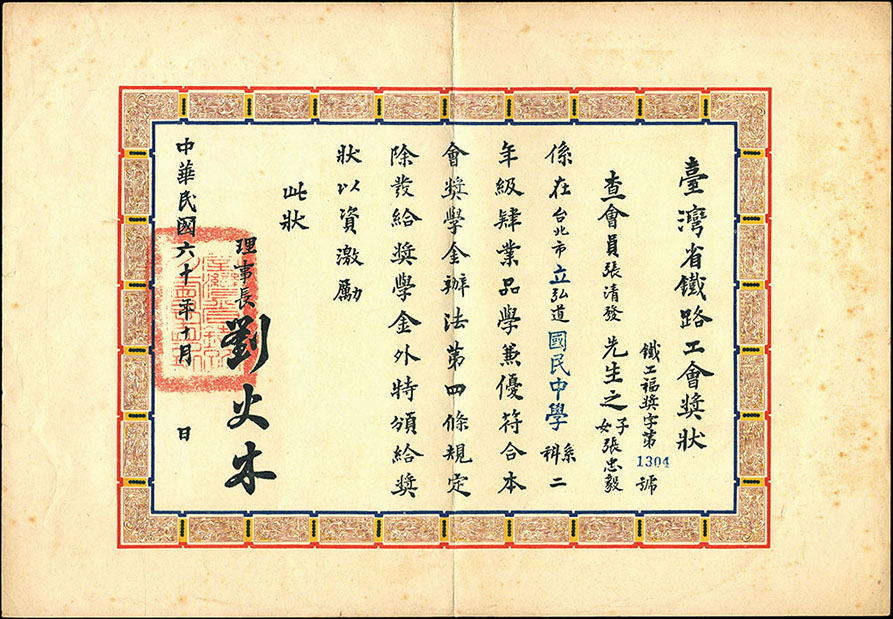 臺灣省鐵路工會奬狀
鐵工福奬字第1304號
查會員張清發先生之子女張忠毅
係在台北市立弘道國民中學系科二
年級肄業品學兼優符合本
會奬學金辦法第四條規定
除發給奬學金外特頒給奬
狀以資激勵
此狀
理事長劉火木
中華民國六十年十月 日